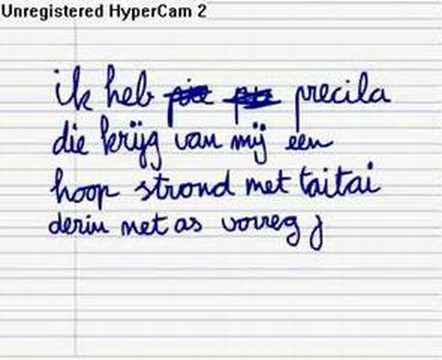 Unregistered HyperCam 2
ik heb precila
die krijg van mij een
hoop strond met taitai
derin net as vorreg j